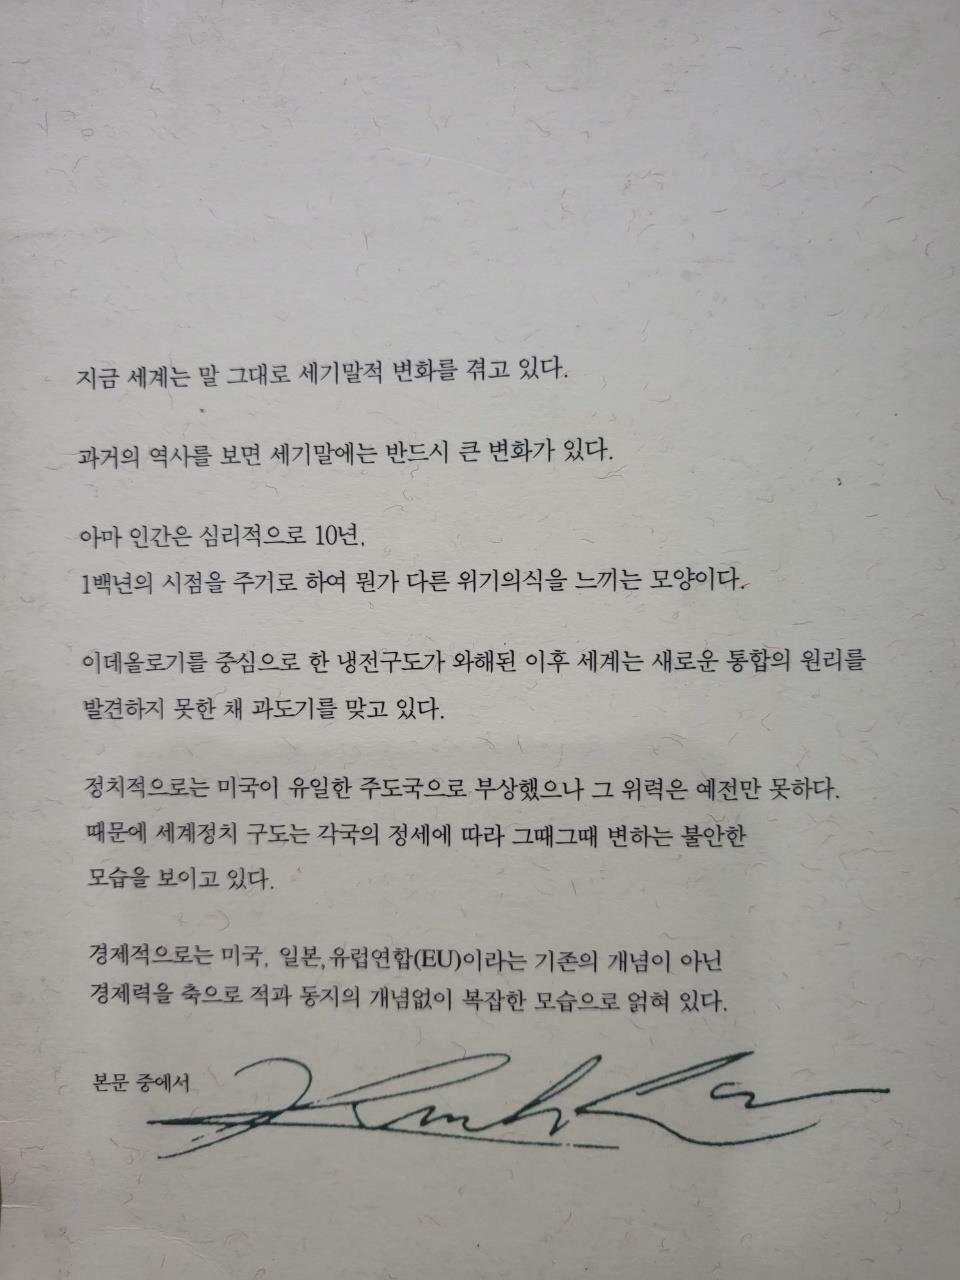 지금 세계는 말 그대로 세기말적 변화를 겪고 있다.
과거의 역사를 보면 세기말에는 반드시 큰 변화가 있다.
아마 인간은 심리적으로 10년,
1백년의 시점을 주기로 하여 뭔가 다른 위기의식을 느끼는 모양이다.
이데올로기를 중심으로 한 냉전구도가 와해된 이후 세계는 새로운 통합의 원리를
발견하지 못한 채 과도기를 맞고 있다.
정치적으로는 미국이 유일한 주도국으로 부상했으나 그 위력은 예전만 못하다.
때문에 세계정치 구도는 각국의 정세에 따라 그때그때 변하는 불안한
모습을 보이고 있다.
경제적으로는 미국, 일본, 유럽연합(EU)이라는 기존의 개념이 아닌
경제력을 축으로 적과 동지의 개념없이 복잡한 모습으로 얽혀 있다.
본문 중에서